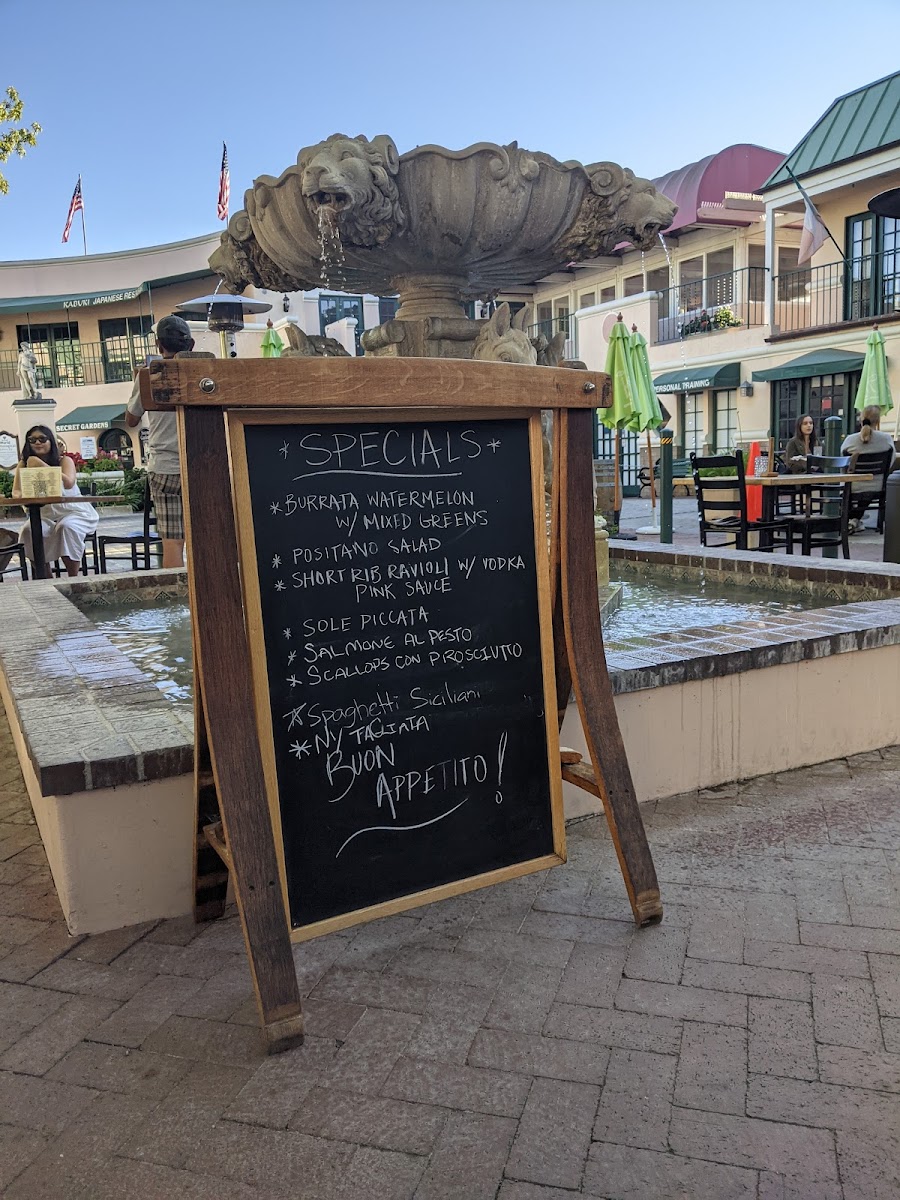 KABUKI JAPANESE RES
SECRET GARDENS
PERSONAL TRAINING
* SPECIALS *
* BURRATA WATERMELON
W/ MIXED GREENS
* POSITANO SALAD
* SHORT RIB RAVIOLI W/ VODKA
PINK SAUCE
* SOLE PICCATA
* SALMONE AL PESTO
* SCALLOPS CON PIROSCIUTTO
* Spaghetti Siciliani
* NY TAGLIATA
BUON
APPETITO!